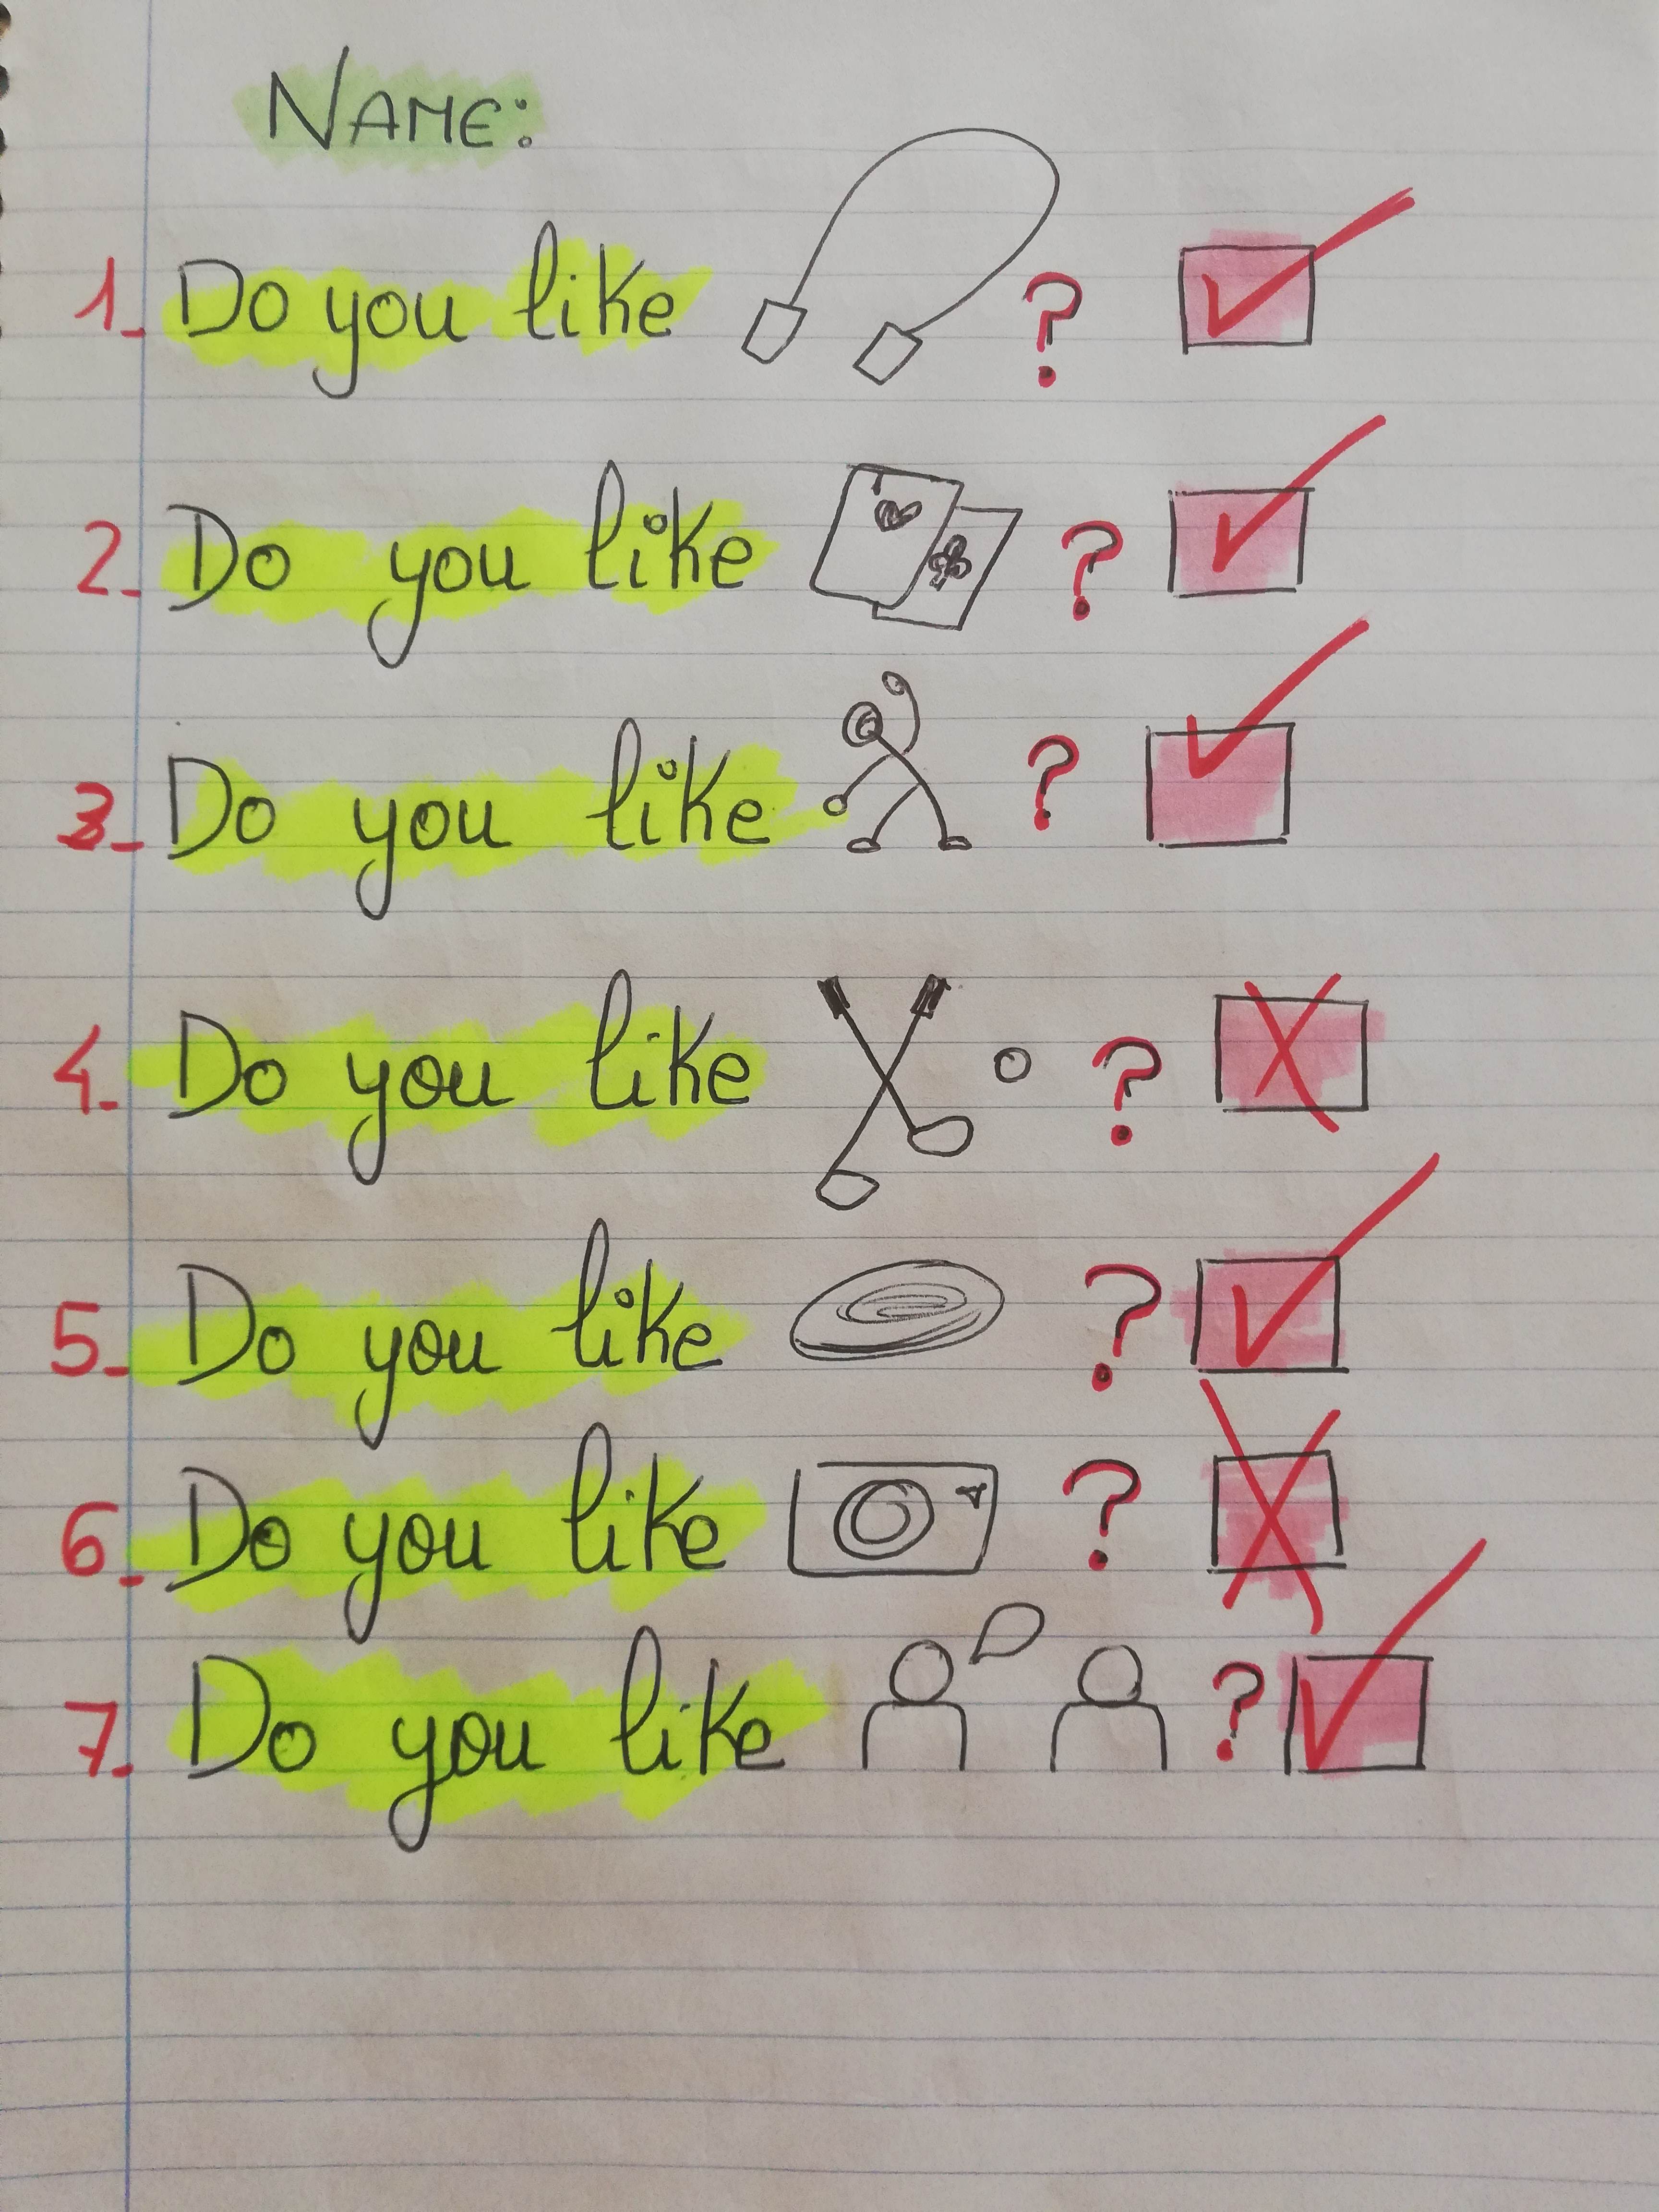 NAME:
1_ Do you like ?
2_ Do you like ?
3_ Do you like ?
4_ Do you like ?
5_ Do you like ?
6_ Do you like ?
7_ Do you like ?